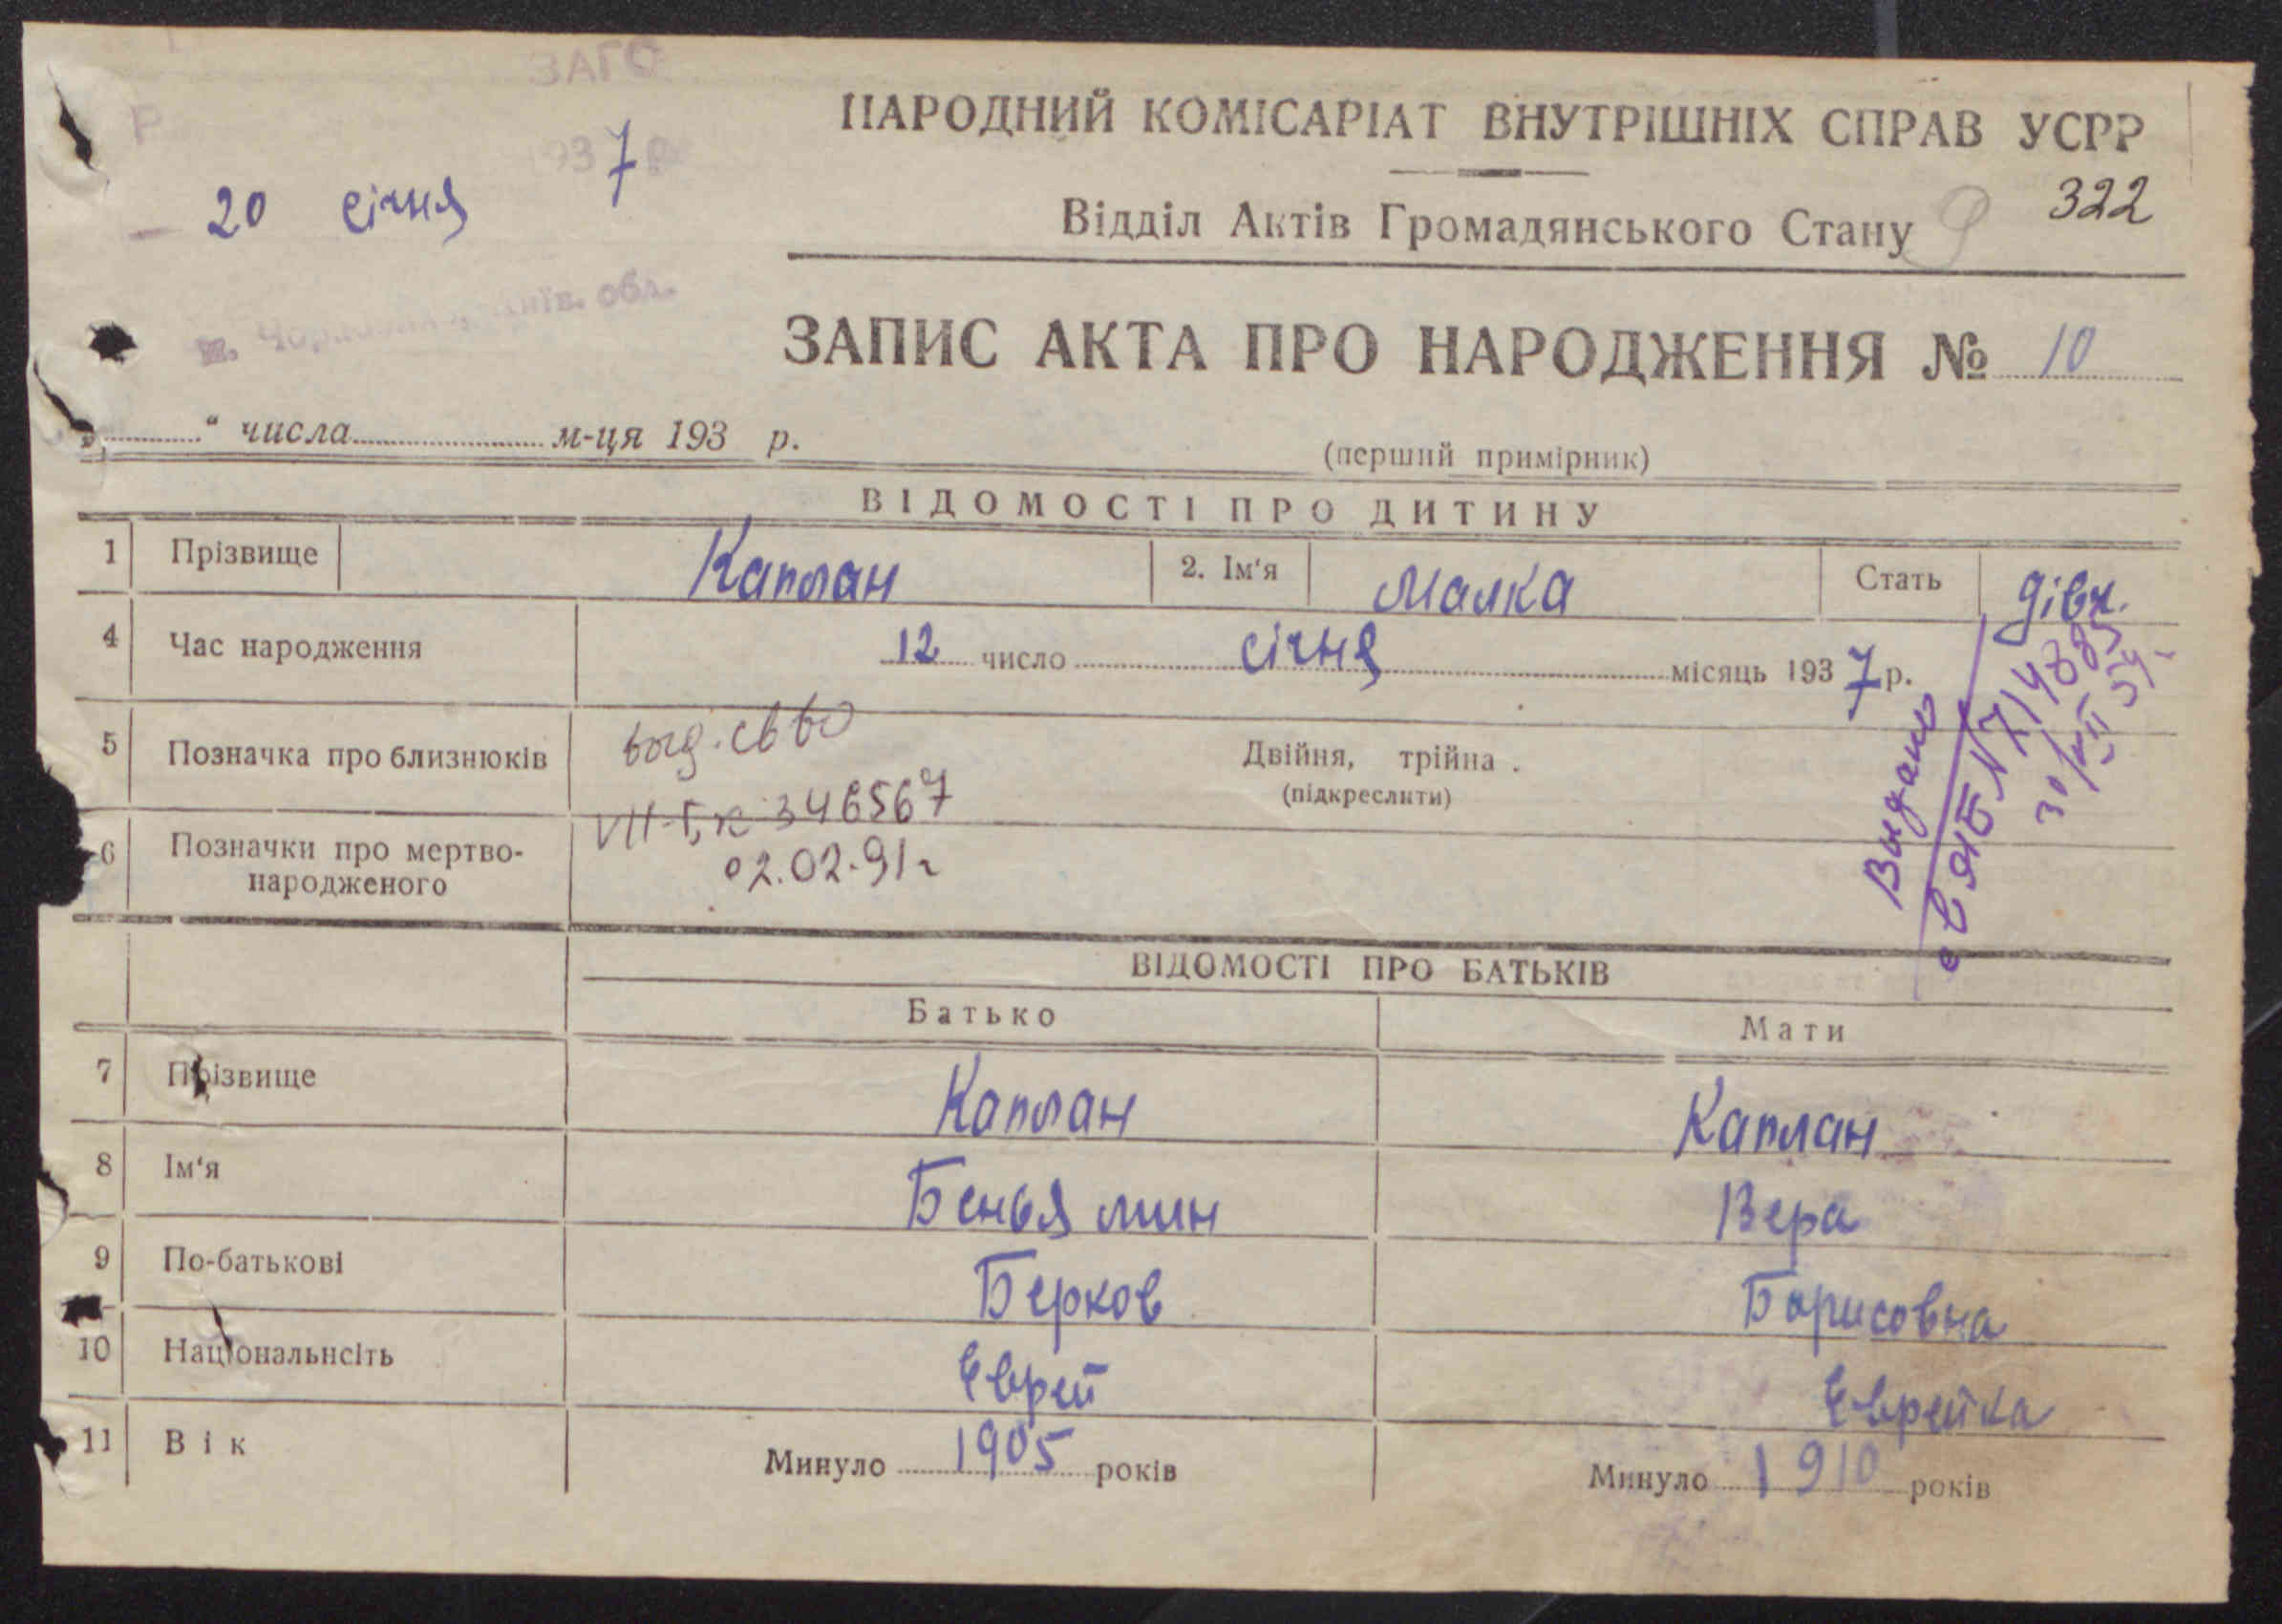 ЗАГС
1937 р.
20 січня
обл.
НАРОДНИЙ КОМІСАРІАТ ВНУТРІШНІХ СПРАВ УСРР
Відділ Актів Громадянського Стану 9 322
ЗАПИС АКТА ПРО НАРОДЖЕННЯ № 10
„ “ числа м-ця 193 р.
(перший примірник)
ВІДОМОСТІ ПРО ДИТИНУ
1 Прізвище Каплан 2. Ім‘я Малка Стать дівч.
4 Час народження 12 число січня місяць 1937 р.
5 Позначка про близнюків выд. св во Двійня, трійна .
(підкреслити)
VII-БК 346567
02.02.91г
6 Позначки про мертво-
народженого
Выдано
ЯБ № 714885
30/VII 59.
ВІДОМОСТІ ПРО БАТЬКІВ
Батько Мати
7 Прізвище Каплан Каплан
8 Ім‘я Беньямин Вера
9 По-батькові Берков Борисовна
10 Національнсіть Єврей Єврейка
11 Вік Минуло 1905 років Минуло 1910 років